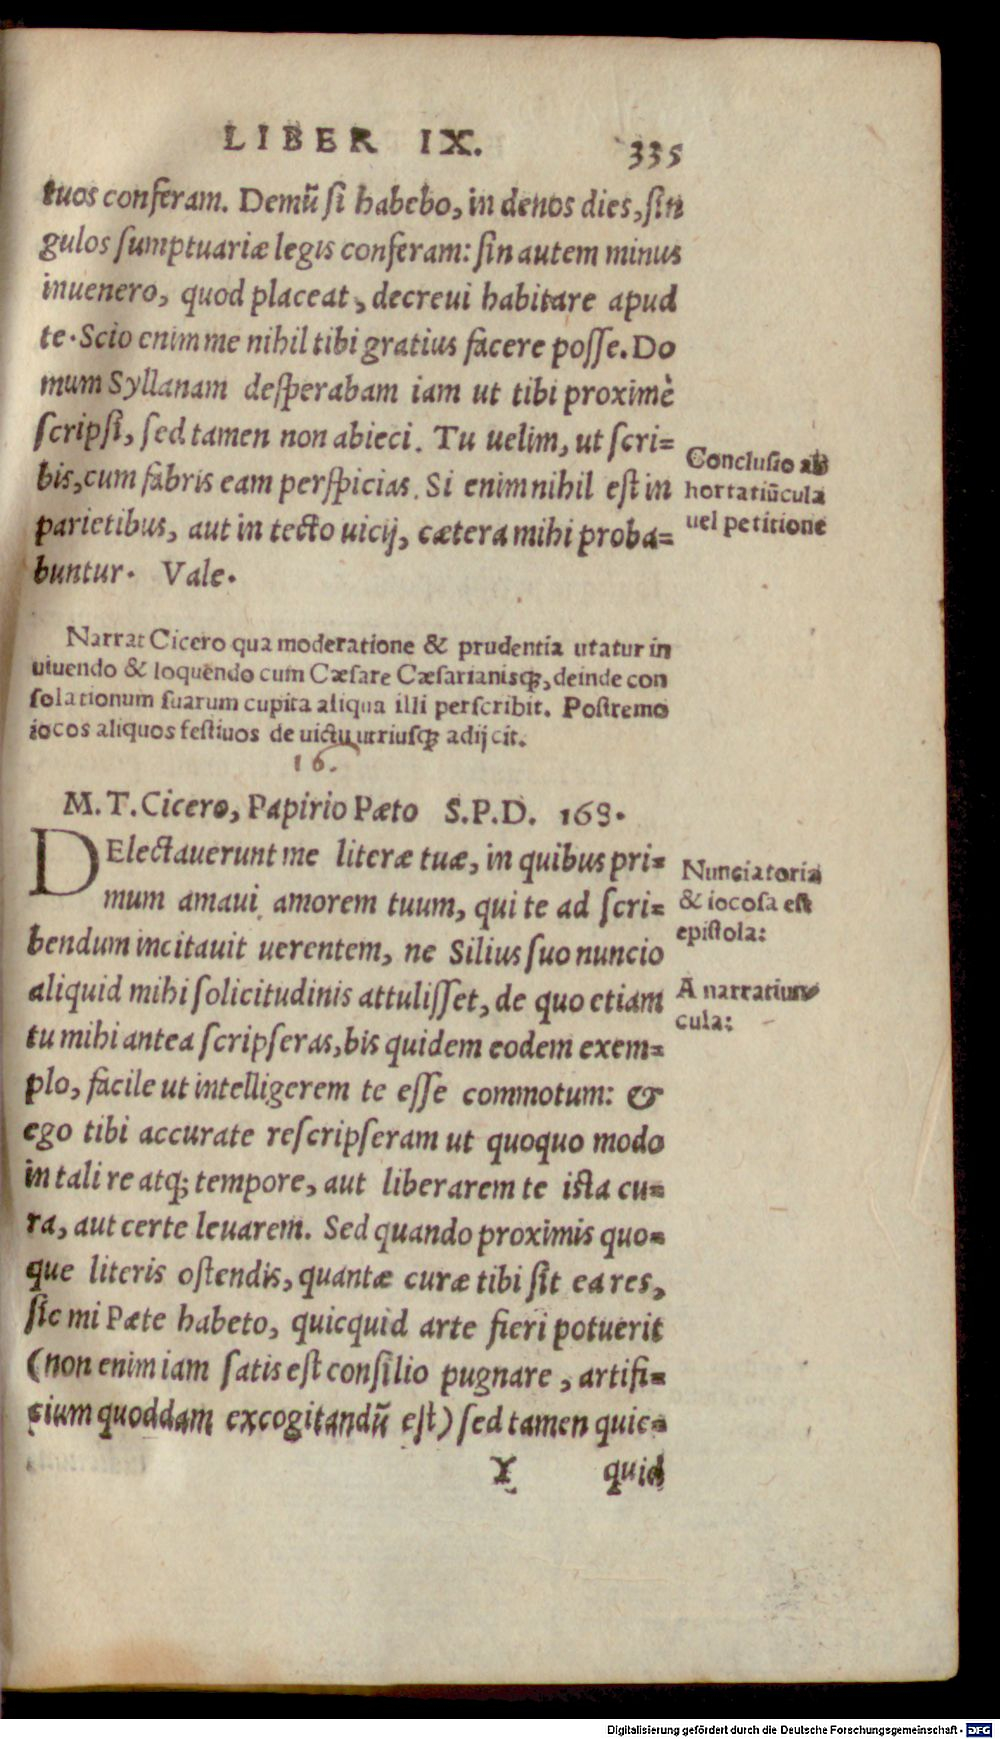 LIBER IX. 335
tuos conferam. Demũ si habebo, in denos dies, sin
gulos sumptuariæ legis conferam: sin autem minus
inuenero, quod placeat, decreui habitare apud
te. Scio enim me nihil tibi gratius facere posse. Do
mum Syllanam desperabam iam ut tibi proximè
scripsi, sed tamen non abieci. Tu uelim, ut scri=
bis, cum fabris eam perspicias. Si enim nihil est in
parietibus, aut in tecto uicij, cætera mihi proba=
buntur. Vale.
Conclusio ab
hortatiũcula
uel petitione
Narrat Cicero qua moderatione & prudentia utatur in
uiuendo & loquendo cum Cæsare Cæsarianisq;, deinde con
solationum suarum cupita aliqua illi perscribit. Postremo
iocos aliquos festiuos de uictu utriusq; adijcit.
16.
M. T. Cicero, Papirio Pæto S. P. D. 168.
DElectauerunt me literæ tuæ, in quibus pri=
mum amaui amorem tuum, qui te ad scri=
bendum incitauit uerentem, ne Silius suo nuncio
aliquid mihi solicitudinis attulisset, de quo etiam
tu mihi antea scripseras, bis quidem eodem exem=
plo, facile ut intelligerem te esse commotum: &
ego tibi accurate rescripseram ut quoquo modo
in tali re atq; tempore, aut liberarem te ista cu=
ra, aut certe leuarem. Sed quando proximis quo=
que literis ostendis, quantæ curæ tibi sit ea res,
sic mi Pæte habeto, quicquid arte fieri potuerit
(non enim iam satis est consilio pugnare, artifi=
cium quoddam excogitandũ est) sed tamen quic=
Nunciatoria
& iocosa est
epistola:
A narratiun
cula:
Y quid
Digitalisierung gefördert durch die Deutsche Forschungsgemeinschaft - DFG